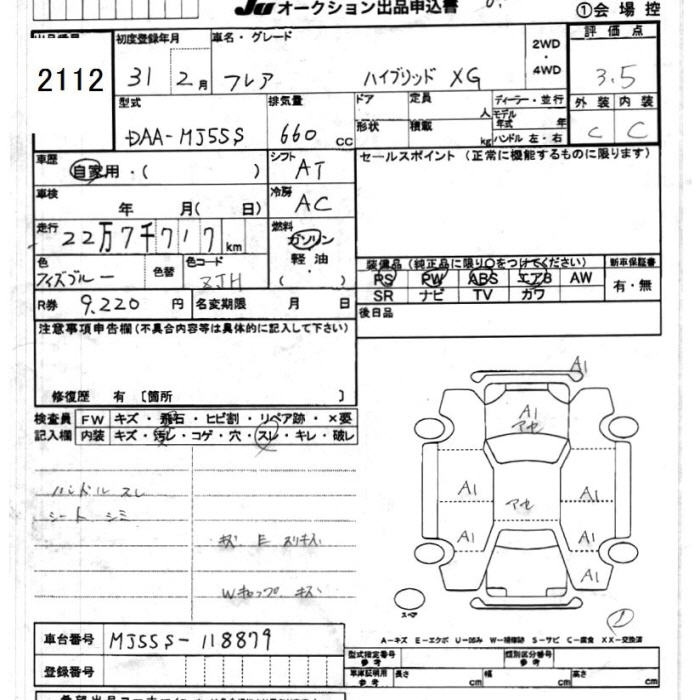 JU オークション出品申込書
①会場控
出品番号 2112
初度登録年月 31 2月
車名・グレード フレア ハイブリッド XG
2WD・4WD
評価点 3.5
型式 DAA-MJ55S
排気量 660 CC
ドア 定員 人
形状 積載 kg
ディーラー・並行
モデル年式 年
ハンドル 左・右
外装 内装
C C
車歴 自家用・( )
シフト AT
セールスポイント(正常に機能するものに限ります)
車検 年 月( 日)
冷房 AC
走行 22万7千717km
燃料 ガソリン 軽油・( )
色 色替 色コード ZJH
装備品(純正品に限り○をつけてください)
新車保証書
PS PW ABS エアB AW
有・無
SR ナビ TV カワ
R券 9,220円 名変期限 月 日
後日品
注意事項申告欄(不具合内容等は具体的に記入して下さい)
修復歴 有〔箇所 〕
検査員 FW キズ・飛石・ヒビ割・リペア跡・×要
記入欄 内装 キズ・汚レ・コゲ・穴・スレ・キレ・破レ
ハンドル スレ
シート シミ
キズ E
Wキャップ キズ
A1
A1
アセ
A1
アセ
A1
A1
A1
A1
スペア
A-キズ E-エクボ U-凹み W-補修跡 S-サビ C-腐食 XX-交換済
車台番号 MJ55S-118879
登録番号
型式指定番号 参考
類別区分番号 参考
車庫証明用 参考 長さ cm 幅 cm 高さ cm